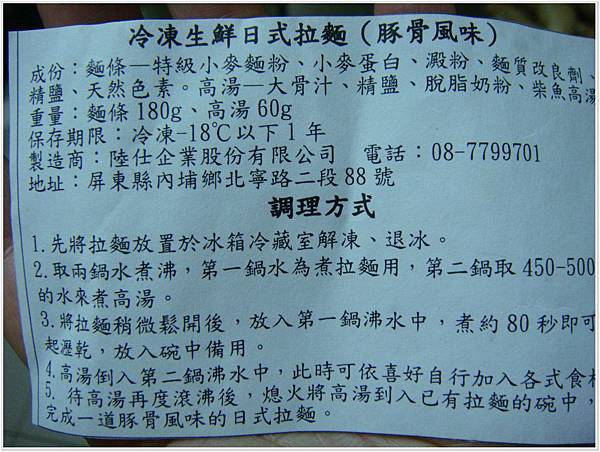 冷凍生鮮日式拉麵（豚骨風味）
成份：麵條—特級小麥麵粉、小麥蛋白、澱粉、麵質改良劑、
精鹽、天然色素。高湯—大骨汁、精鹽、脫脂奶粉、柴魚高湯
重量：麵條 180g、高湯 60g
保存期限：冷凍-18℃以下 1 年
製造商：陸仕企業股份有限公司 電話：08-7799701
地址：屏東縣內埔鄉北寧路二段 88 號
調理方式
1.先將拉麵放置於冰箱冷藏室解凍、退冰。
2.取兩鍋水煮沸，第一鍋水為煮拉麵用，第二鍋取 450-500
的水來煮高湯。
3.將拉麵稍微鬆開後，放入第一鍋沸水中，煮約 80 秒即可
起瀝乾，放入碗中備用。
4.高湯倒入第二鍋沸水中，此時可依喜好自行加入各式食材
5. 待高湯再度滾沸後，熄火將高湯到入已有拉麵的碗中，
完成一道豚骨風味的日式拉麵。